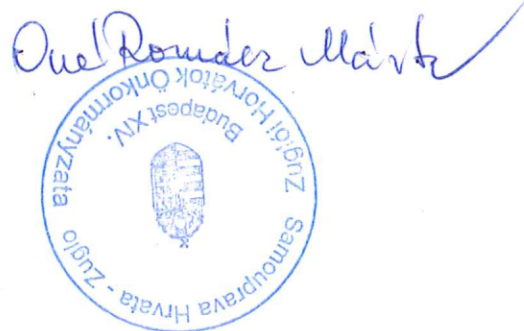 Oné Romácz Márta
Zuglói Horvátok Önkormányzata
Budapest XIV.
Samouprava Hrvata - Zuglo